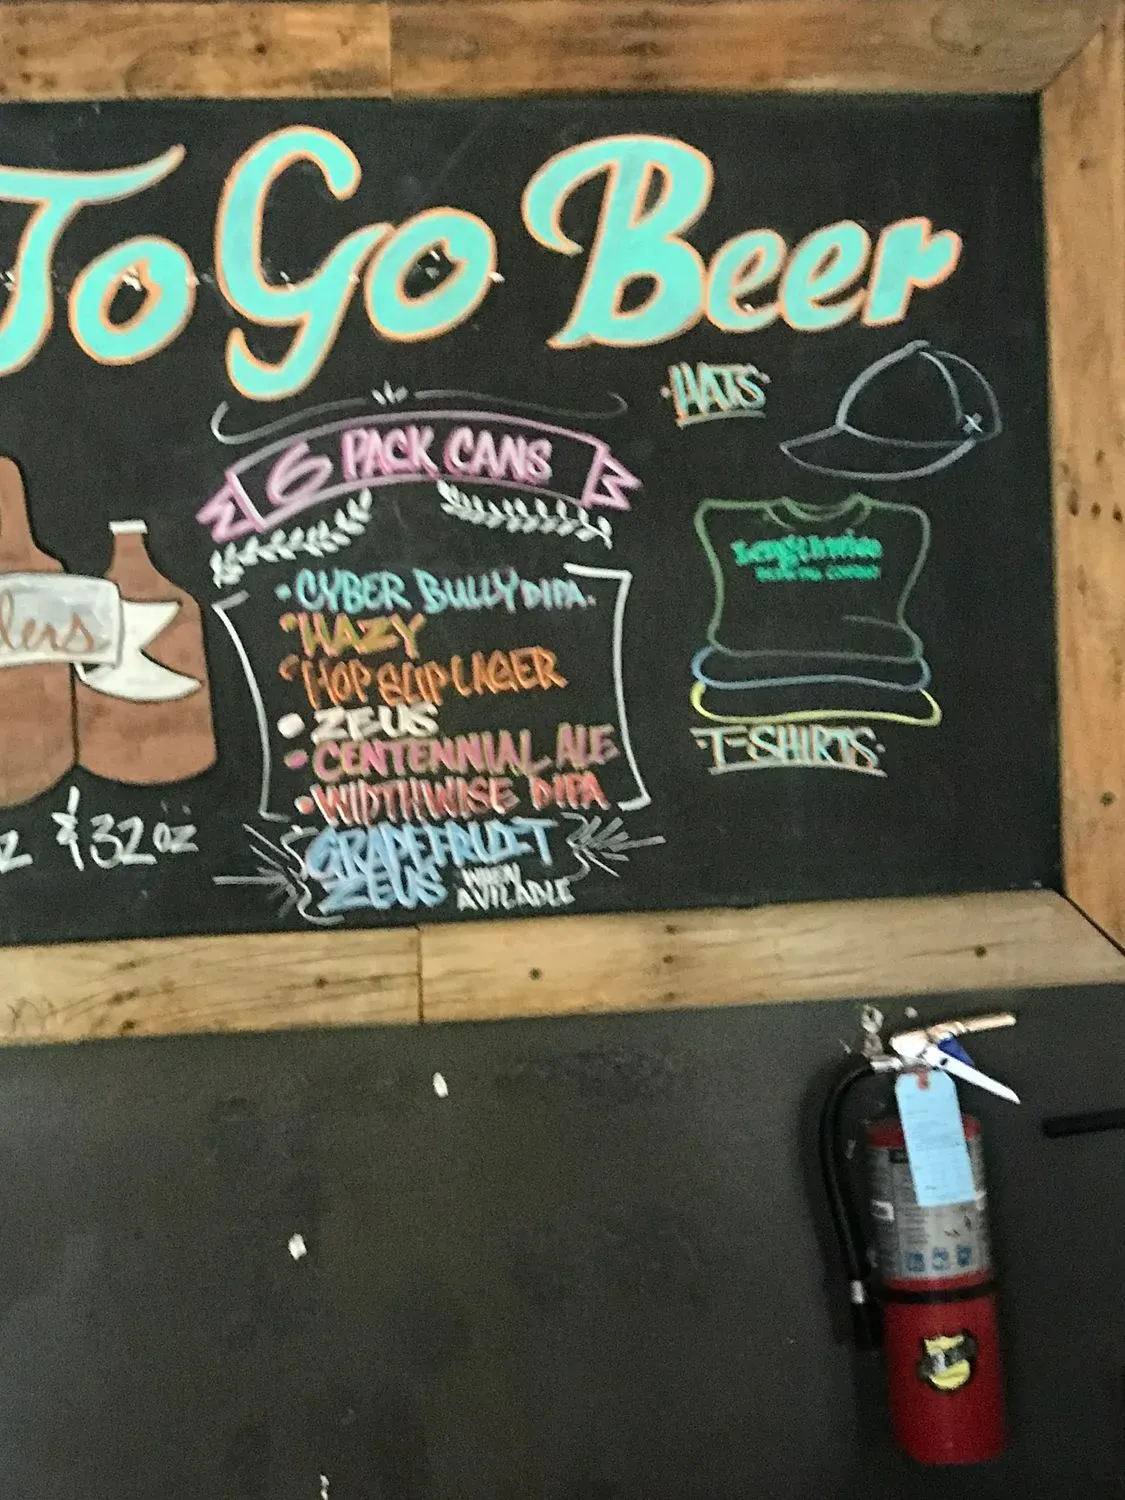 To Go Beer
HATS
6 PACK CANS
Lengthwise
BREWING COMPANY
• CYBER BULLY DIPA.
• HAZY
• HOP SLIP LAGER
• ZEUS
• CENTENNIAL ALE
• WIDTHWISE DIPA
GRAPEFRUIT
ZEUS WHEN
AVILABLE
T-SHIRTS
lers
& 32 oz